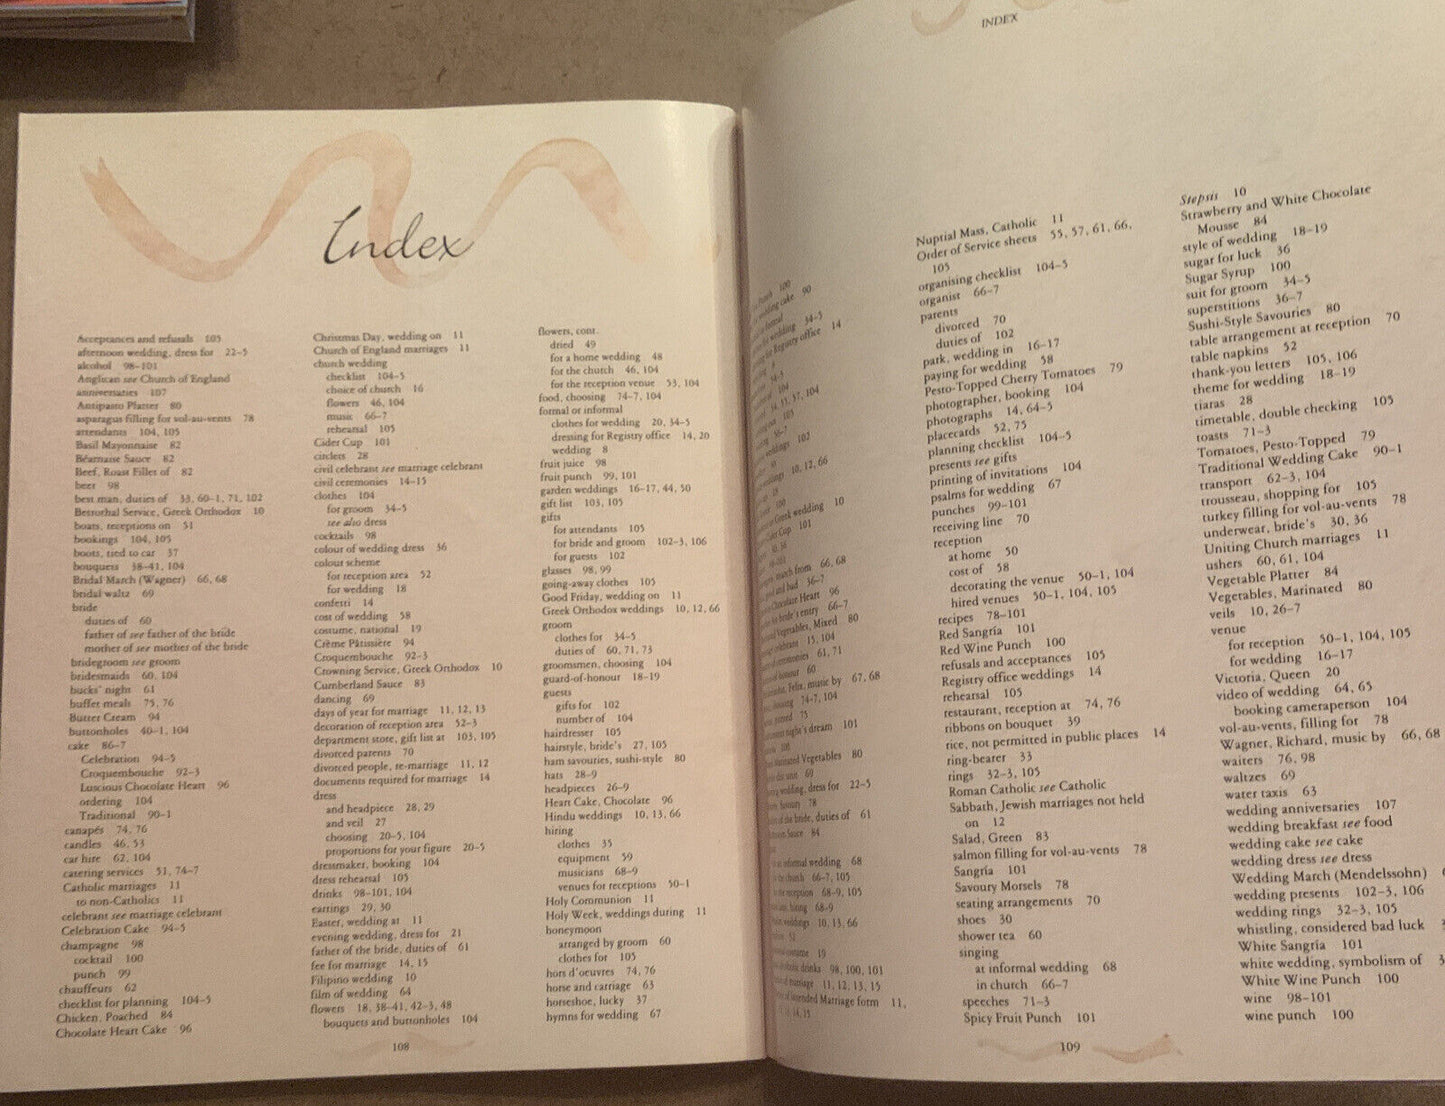 Index
Acceptances and refusals 105
afternoon wedding, dress for 22–5
alcohol 98–101
Anglican see Church of England
anniversaries 107
Antipasto Platter 80
asparagus filling for vol-au-vents 78
attendants 104, 105
Basil Mayonnaise 82
Béarnaise Sauce 82
Beef, Roast Fillet of 82
beer 98
best man, duties of 33, 60–1, 71, 102
Betrothal Service, Greek Orthodox 10
boats, receptions on 51
bookings 104, 105
boots, tied to car 37
bouquets 38–41, 104
Bridal March (Wagner) 66, 68
bridal waltz 69
bride
duties of 60
father of see father of the bride
mother of see mother of the bride
bridegroom see groom
bridesmaids 60, 104
bucks' night 61
buffet meals 75, 76
Butter Cream 94
buttonholes 40–1, 104
cake 86–7
Celebration 94–5
Croquembouche 92–3
Luscious Chocolate Heart 96
ordering 104
Traditional 90–1
canapés 74, 76
candles 46, 53
car hire 62, 104
catering services 51, 74–7
Catholic marriages 11
to non-Catholics 11
celebrant see marriage celebrant
Celebration Cake 94–5
champagne 98
cocktail 100
punch 99
chauffeurs 62
checklist for planning 104–5
Chicken, Poached 84
Chocolate Heart Cake 96
Christmas Day, wedding on 11
Church of England marriages 11
church wedding
checklist 104–5
choice of church 16
flowers 46, 104
music 66–7
rehearsal 105
Cider Cup 101
circlets 28
civil celebrant see marriage celebrant
civil ceremonies 14–15
clothes 104
for groom 34–5
see also dress
cocktails 98
colour of wedding dress 36
colour scheme
for reception area 52
for wedding 18
confetti 14
cost of wedding 58
costume, national 19
Crème Pâtissière 94
Croquembouche 92–3
Crowning Service, Greek Orthodox 10
Cumberland Sauce 83
dancing 69
days of year for marriage 11, 12, 13
decoration of reception area 52–3
department store, gift list at 103, 105
divorced parents 70
divorced people, re-marriage 11, 12
documents required for marriage 14
dress
and headpiece 28, 29
and veil 27
choosing 20–5, 104
proportions for your figure 20–5
dressmaker, booking 104
dress rehearsal 105
drinks 98–101, 104
earrings 29, 30
Easter, wedding at 11
evening wedding, dress for 21
father of the bride, duties of 61
fee for marriage 14, 15
Filipino wedding 10
film of wedding 64
flowers 18, 38–41, 42–3, 48
bouquets and buttonholes 104
flowers, cont.
dried 49
for a home wedding 48
for the church 46, 104
for the reception venue 53, 104
food, choosing 74–7, 104
formal or informal
clothes for wedding 20, 34–5
dressing for Registry office 14, 20
wedding 8
fruit juice 98
fruit punch 99, 101
garden weddings 16–17, 44, 50
gift list 103, 105
gifts
for attendants 105
for bride and groom 102–3, 106
for guests 102
glasses 98, 99
going-away clothes 105
Good Friday, wedding on 11
Greek Orthodox weddings 10, 12, 66
groom
clothes for 34–5
duties of 60, 71, 73
groomsmen, choosing 104
guard-of-honour 18–19
guests
gifts for 102
number of 104
hairdresser 105
hairstyle, bride's 27, 105
ham savouries, sushi-style 80
hats 28–9
headpieces 26–9
Heart Cake, Chocolate 96
Hindu weddings 10, 13, 66
hiring
clothes 35
equipment 59
musicians 68–9
venues for receptions 50–1
Holy Communion 11
Holy Week, weddings during 11
honeymoon
arranged by groom 60
clothes for 105
hors d'oeuvres 74, 76
horse and carriage 63
horseshoe, lucky 37
hymns for wedding 67
108
INDEX
Punch 100
wedding cake 90
wedding 34–5
Registry office 14
104
105
weddings 102
10, 12, 66
100
Greek wedding 10
Cup 101
march from 66, 68
good and bad 36–7
Chocolate Heart 96
bride's entry 66–7
Vegetables, Mixed 80
celebrant 15, 104
ceremonies 61, 71
of honour 60
Felix, music by 67, 68
choosing 74–7, 104
printed 75
night's dream 101
Marinated Vegetables 80
wedding, dress for 22–5
Savoury 78
of the bride, duties of 61
Sauce 84
at informal wedding 68
in church 66–7, 105
reception 68–9, 105
hiring 68–9
weddings 10, 13, 66
costume 19
drinks 98, 100, 101
of marriage 11, 12, 13, 15
of Intended Marriage form 11,
14, 15
Nuptial Mass, Catholic 11
Order of Service sheets 55, 57, 61, 66,
105
organising checklist 104–5
organist 66–7
parents
divorced 70
duties of 102
park, wedding in 16–17
paying for wedding 58
Pesto-Topped Cherry Tomatoes 79
photographer, booking 104
photographs 14, 64–5
placecards 52, 75
planning checklist 104–5
presents see gifts
printing of invitations 104
psalms for wedding 67
punches 99–101
receiving line 70
reception
at home 50
cost of 58
decorating the venue 50–1, 104
hired venues 50–1, 104, 105
recipes 78–101
Red Sangría 101
Red Wine Punch 100
refusals and acceptances 105
Registry office weddings 14
rehearsal 105
restaurant, reception at 74, 76
ribbons on bouquet 39
rice, not permitted in public places 14
ring-bearer 33
rings 32–3, 105
Roman Catholic see Catholic
Sabbath, Jewish marriages not held
on 12
Salad, Green 83
salmon filling for vol-au-vents 78
Sangría 101
Savoury Morsels 78
seating arrangements 70
shoes 30
shower tea 60
singing
at informal wedding 68
in church 66–7
speeches 71–3
Spicy Fruit Punch 101
Stepsis 10
Strawberry and White Chocolate
Mousse 84
style of wedding 18–19
sugar for luck 36
Sugar Syrup 100
suit for groom 34–5
superstitions 36–7
Sushi-Style Savouries 80
table arrangement at reception 70
table napkins 52
thank-you letters 105, 106
theme for wedding 18–19
tiaras 28
timetable, double checking 105
toasts 71–3
Tomatoes, Pesto-Topped 79
Traditional Wedding Cake 90–1
transport 62–3, 104
trousseau, shopping for 105
turkey filling for vol-au-vents 78
underwear, bride's 30, 36
Uniting Church marriages 11
ushers 60, 61, 104
Vegetable Platter 84
Vegetables, Marinated 80
veils 10, 26–7
venue
for reception 50–1, 104, 105
for wedding 16–17
Victoria, Queen 20
video of wedding 64, 65
booking cameraperson 104
vol-au-vents, filling for 78
Wagner, Richard, music by 66, 68
waiters 76, 98
waltzes 69
water taxis 63
wedding anniversaries 107
wedding breakfast see food
wedding cake see cake
wedding dress see dress
Wedding March (Mendelssohn)
wedding presents 102–3, 106
wedding rings 32–3, 105
whistling, considered bad luck
White Sangría 101
white wedding, symbolism of
White Wine Punch 100
wine 98–101
wine punch 100
109